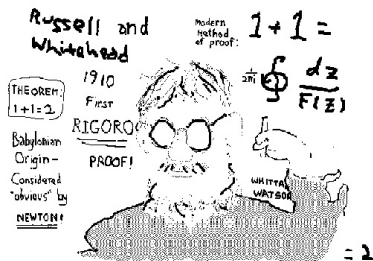 Russell and
Whitehead
1910
First
RIGORO
PROOF!
THEOREM:
1+1=2
Babylonian
Origin-
Considered
"obvious" by
NEWTON!
Modern
Method
of proof:
1+1=
1/2πi ∮ dz/F(z)
WHITTA
WATSON
= 2